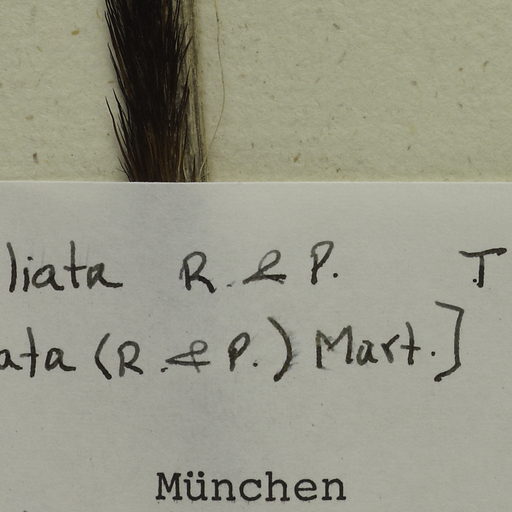 liata R. & P. T
ata (R. & P.) Mart.]
München